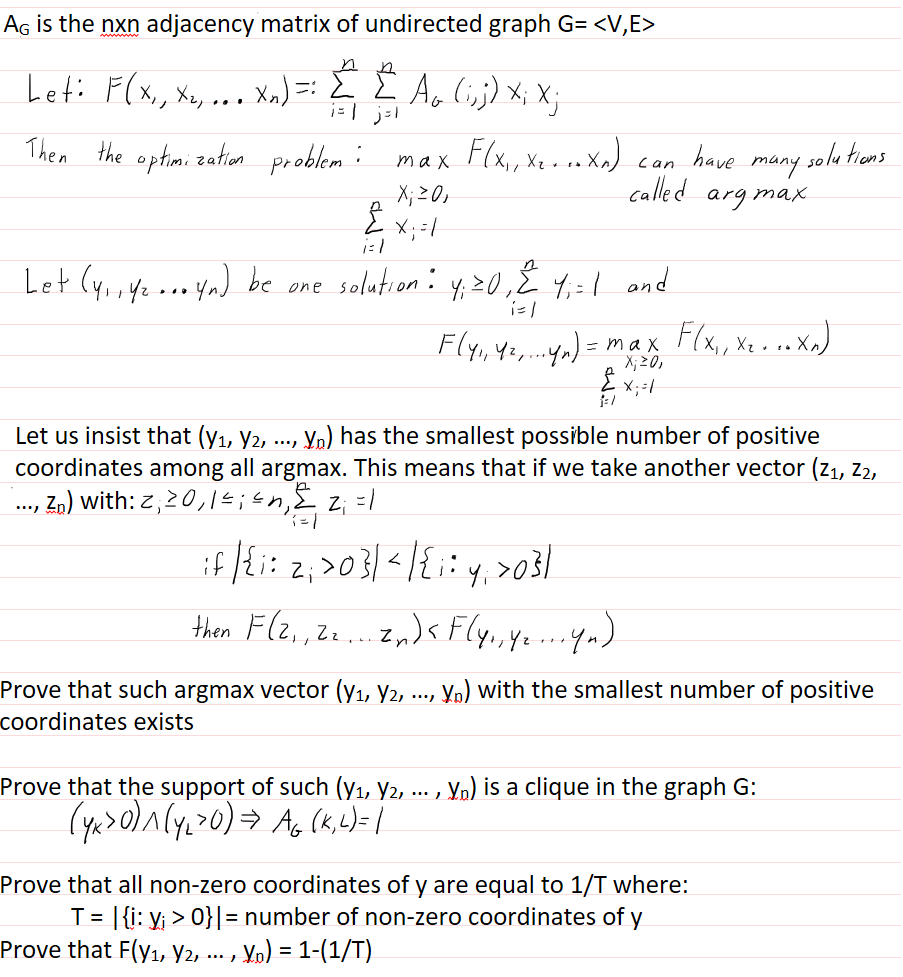 A_G is the nxn adjacency matrix of undirected graph G= <V,E>
Let: F(x₁, x₂, ... xₙ) =: Σ_{i=1}^{n} Σ_{j=1}^{n} A_G (i,j) xᵢ xⱼ
Then the optimization problem : max F(x₁, x₂ . .. xₙ) can have many solutions
xᵢ≥0, called argmax
Σ_{i=1}^{n} xᵢ=1
Let (y₁, y₂ ... yₙ) be one solution : yᵢ≥0, Σ_{i=1}^{n} yᵢ=1 and
F(y₁, y₂, ...yₙ) = max F(x₁, x₂ . .. xₙ)
xᵢ≥0,
Σ_{i=1}^{n} xᵢ=1
Let us insist that (y₁, y₂, ..., yₙ) has the smallest possible number of positive
coordinates among all argmax. This means that if we take another vector (z₁, z₂,
..., zₙ) with: zᵢ≥0, 1≤i≤n, Σ_{i=1}^{n} zᵢ =1
if |{i: zᵢ>0}| < |{i: yᵢ>0}|
then F(z₁, z₂ ... zₙ) < F(y₁, y₂ ... yₙ)
Prove that such argmax vector (y₁, y₂, ..., yₙ) with the smallest number of positive
coordinates exists
Prove that the support of such (y₁, y₂, ... , yₙ) is a clique in the graph G:
(y_K>0)∧(y_L>0) ⇒ A_G (K,L)=1
Prove that all non-zero coordinates of y are equal to 1/T where:
T = |{i: yᵢ > 0}|= number of non-zero coordinates of y
Prove that F(y₁, y₂, ... , yₙ) = 1-(1/T)